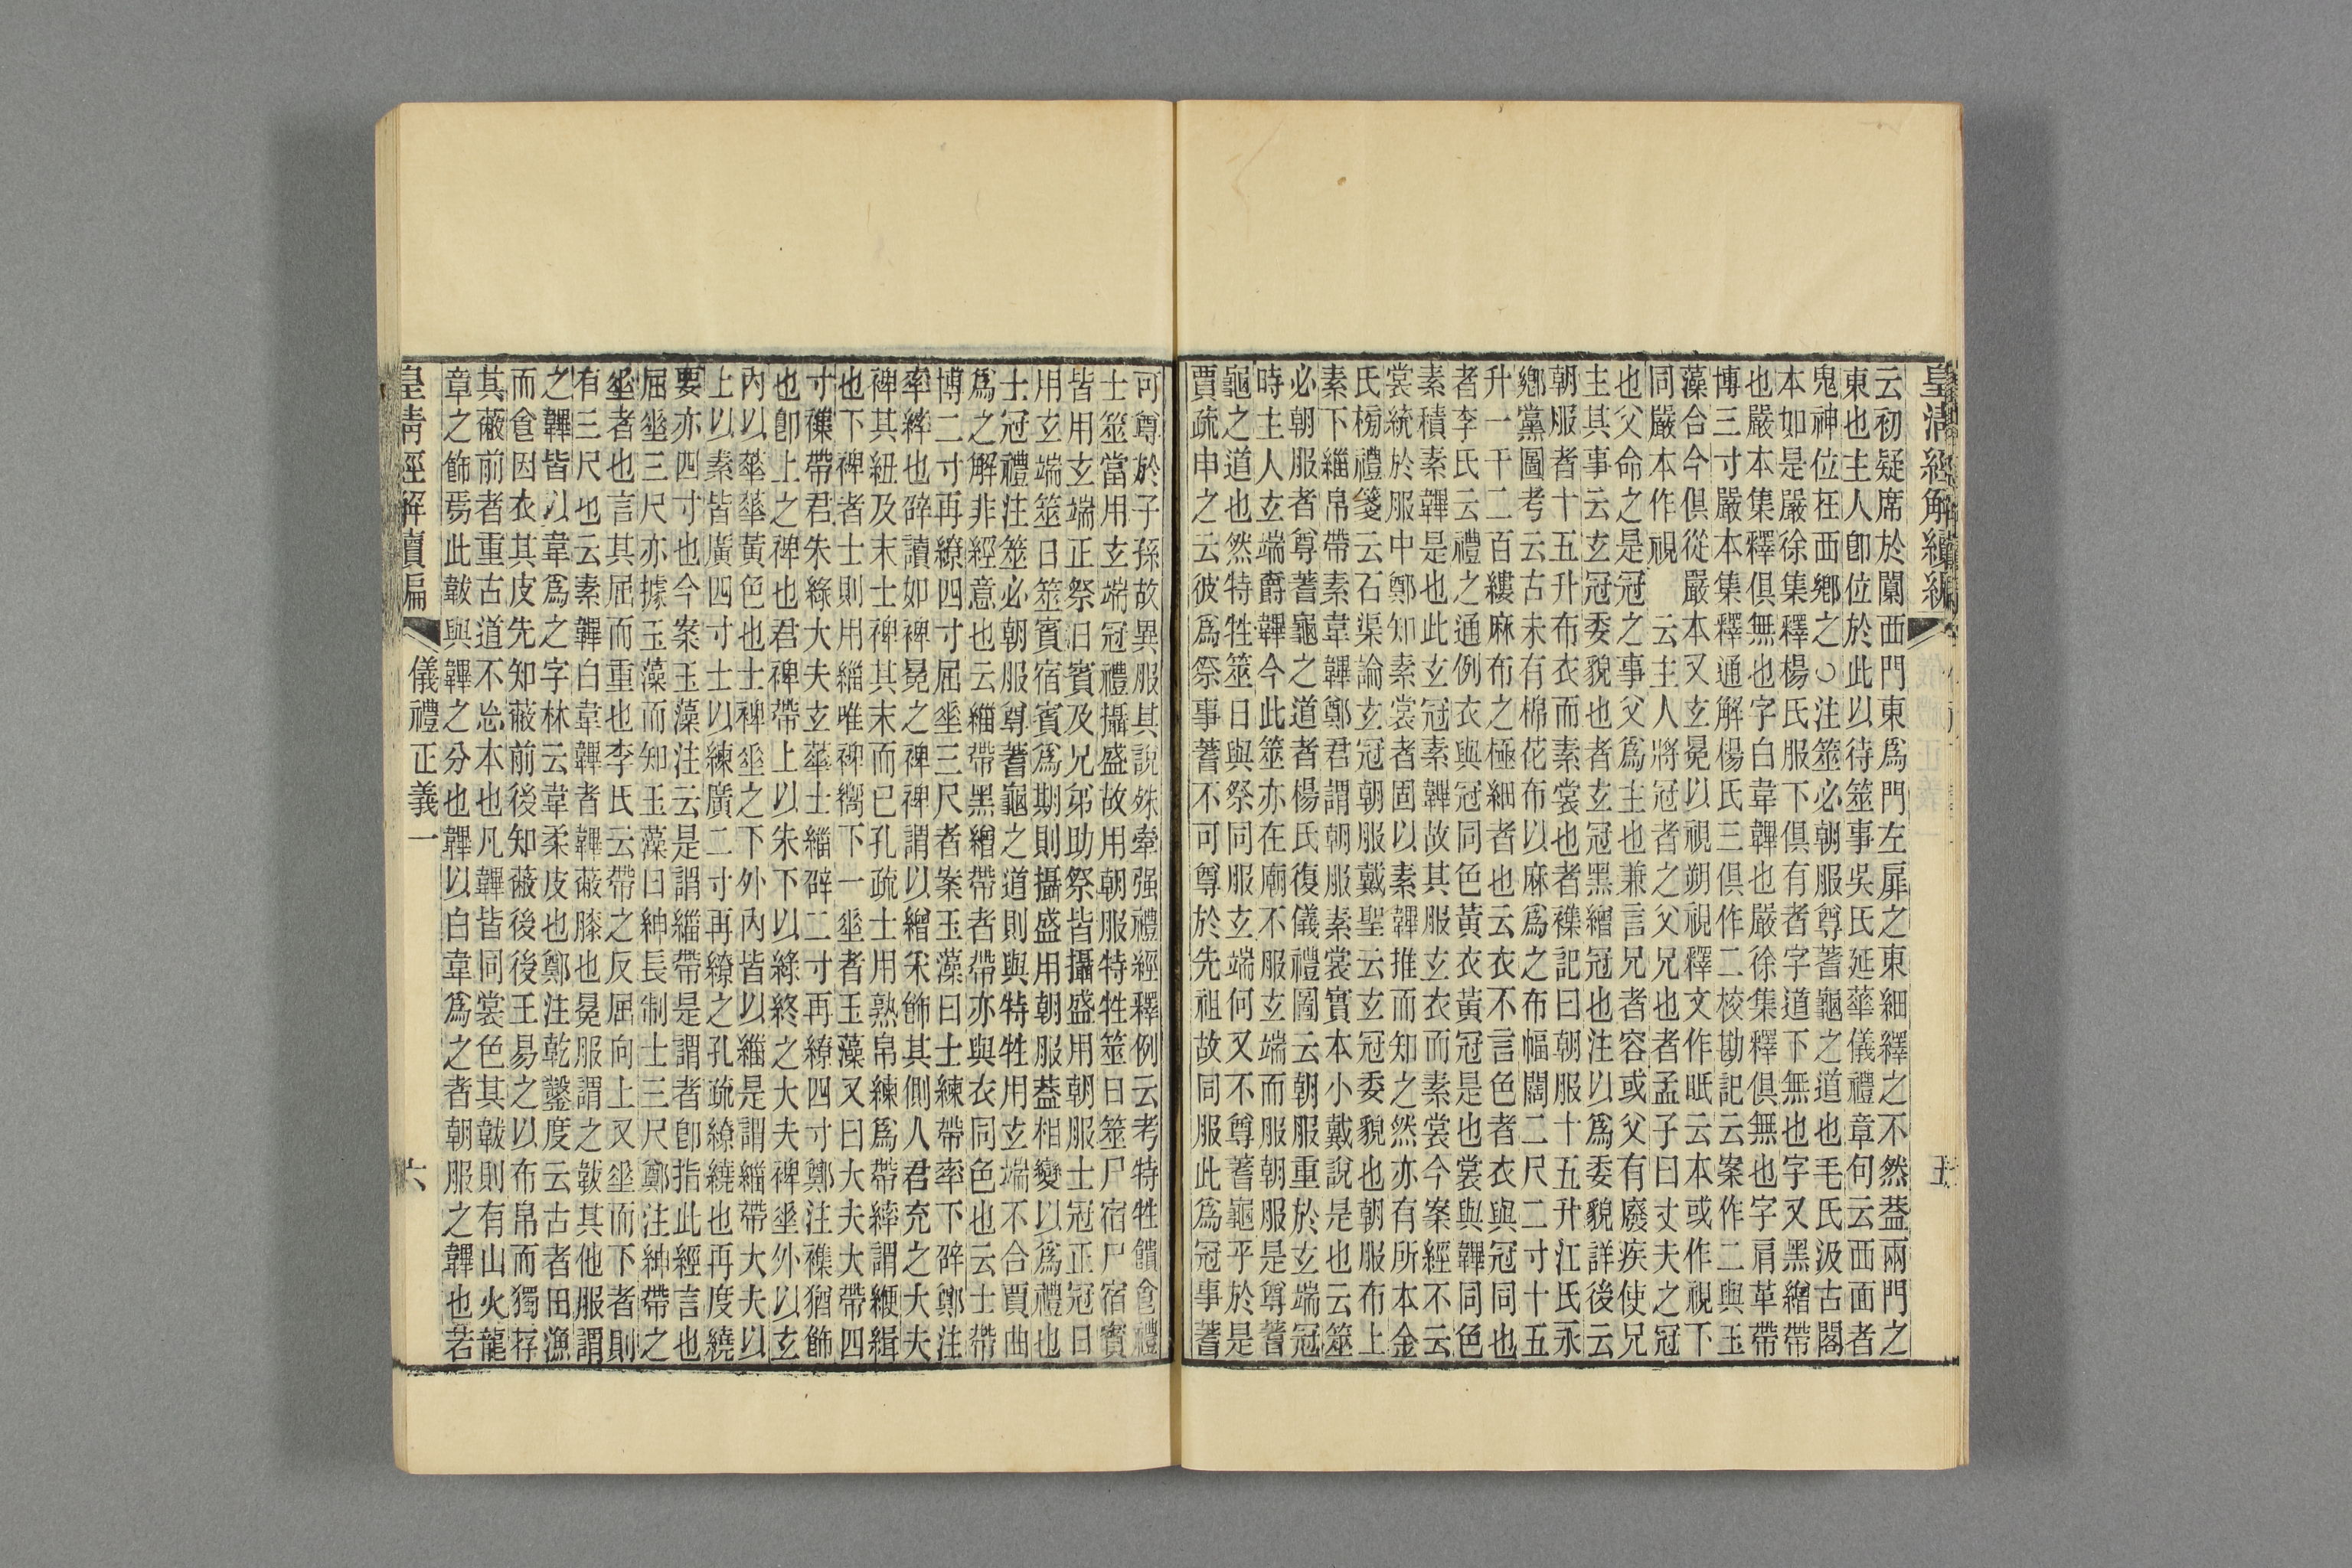 皇清經解續編 五
云初疑席於闑西門東爲門左扉之東細繹之不然葢兩門之
東也主人卽位於此以待筮事吳氏延華儀禮章句云西面者
鬼神位在西鄉之○注筮必朝服尊蓍龜之道也毛氏汲古閣
本如是嚴徐集釋楊氏服下俱有者字道下無也字又黑繒帶
也嚴本集釋俱無也字白韋韠也嚴徐集釋俱無也字肩革帶
博三寸嚴本集釋通解楊氏三俱作二校勘記云案作二與玉
藻合今俱從嚴本又玄冕以視朔視釋文作眂云本或作視下
同嚴本作視　云主人將冠者之父兄也者孟子曰丈夫之冠
也父命之是冠之事父爲主也兼言兄者容或父有廢疾使兄
主其事云玄冠委貌也者玄冠黑繒冠也注以爲委貌詳後云
朝服者十五升布衣而素裳也者襍記曰朝服十五升江氏永
鄉黨圖考云古未有棉花布以麻爲之布幅闊二尺二寸十五
升一千二百縷麻布之極細者也云衣不言色者衣與冠同也
者李氏云禮之通例衣與冠同色黃衣黃冠是也裳與韠同色
素積素韠是也此玄冠素韠故其服玄衣而素裳今案經不云
裳統於服中鄭知素裳者固以素韠推而知之然亦有所本金
氏榜禮箋云石渠論玄冠朝服戴聖云玄冠委貌也朝服布上
素下緇帛帶素韋韠鄭君謂朝服素裳實本小戴說是也云筮
必朝服者尊蓍龜之道者楊氏復儀禮圖云朝服重於玄端冠
時主人玄端爵韠今此筮亦在廟不服玄端而服朝服是尊蓍
龜之道也然特牲筮日與祭同服玄端何又不尊蓍龜乎於是
賈疏申之云彼爲祭事蓍不可尊於先祖故同服此爲冠事蓍
可尊於子孫故異服其說殊牽强禮經釋例云考特牲饋食禮
士筮當用玄端冠禮攝盛故用朝服特牲筮日筮尸宿尸宿賓
皆用玄端正祭日賓及兄弟助祭皆攝盛用朝服士冠正冠日
用玄端筮日筮賓宿賓爲期則攝盛用朝服葢相變以爲禮也
士冠禮注筮必朝服尊蓍龜之道則與特牲用玄端不合賈曲
爲之解非經意也云緇帶黑繒帶者帶亦與衣同色也云士帶
博二寸再繚四寸屈垂三尺者案玉藻曰士練帶率下辟鄭注
率繂也辟讀如裨冕之裨裨謂以繒采飾其側人君充之大夫
裨其紐及末士裨其末而已孔疏士用熟帛練爲帶繂謂緶緝
也下裨者士則用緇唯裨嚮下一垂者玉藻又曰大夫大帶四
寸襍帶君朱綠大夫玄華士緇辟二寸再繚四寸鄭注襍猶飾
也卽上之裨也君裨帶上以朱下以綠終之大夫裨垂外以玄
內以華華黃色也士裨垂之下外內皆以緇是謂緇帶大夫以
上以素皆廣四寸士以練廣二寸再繚之孔疏繚繞也再度繞
要亦四寸也今案玉藻注云是謂緇帶是謂者卽指此經言也
屈垂三尺亦據玉藻而知玉藻曰紳長制士三尺鄭注紳帶之
垂者也言其屈而重也李氏云帶之反屈向上又垂而下者則
有三尺也云素韠白韋韠者韠蔽膝也冕服謂之韍其他服謂
之韠皆以韋爲之字林云韋柔皮也鄭注乾鑿度云古者田漁
而食因衣其皮先知蔽前後知蔽後後王易之以布帛而獨存
其蔽前者重古道不忘本也凡韠皆同裳色其韍則有山火龍
章之飾焉此韍與韠之分也韠以白韋爲之者朝服之韠也若
皇清經解續編 儀禮正義一 六